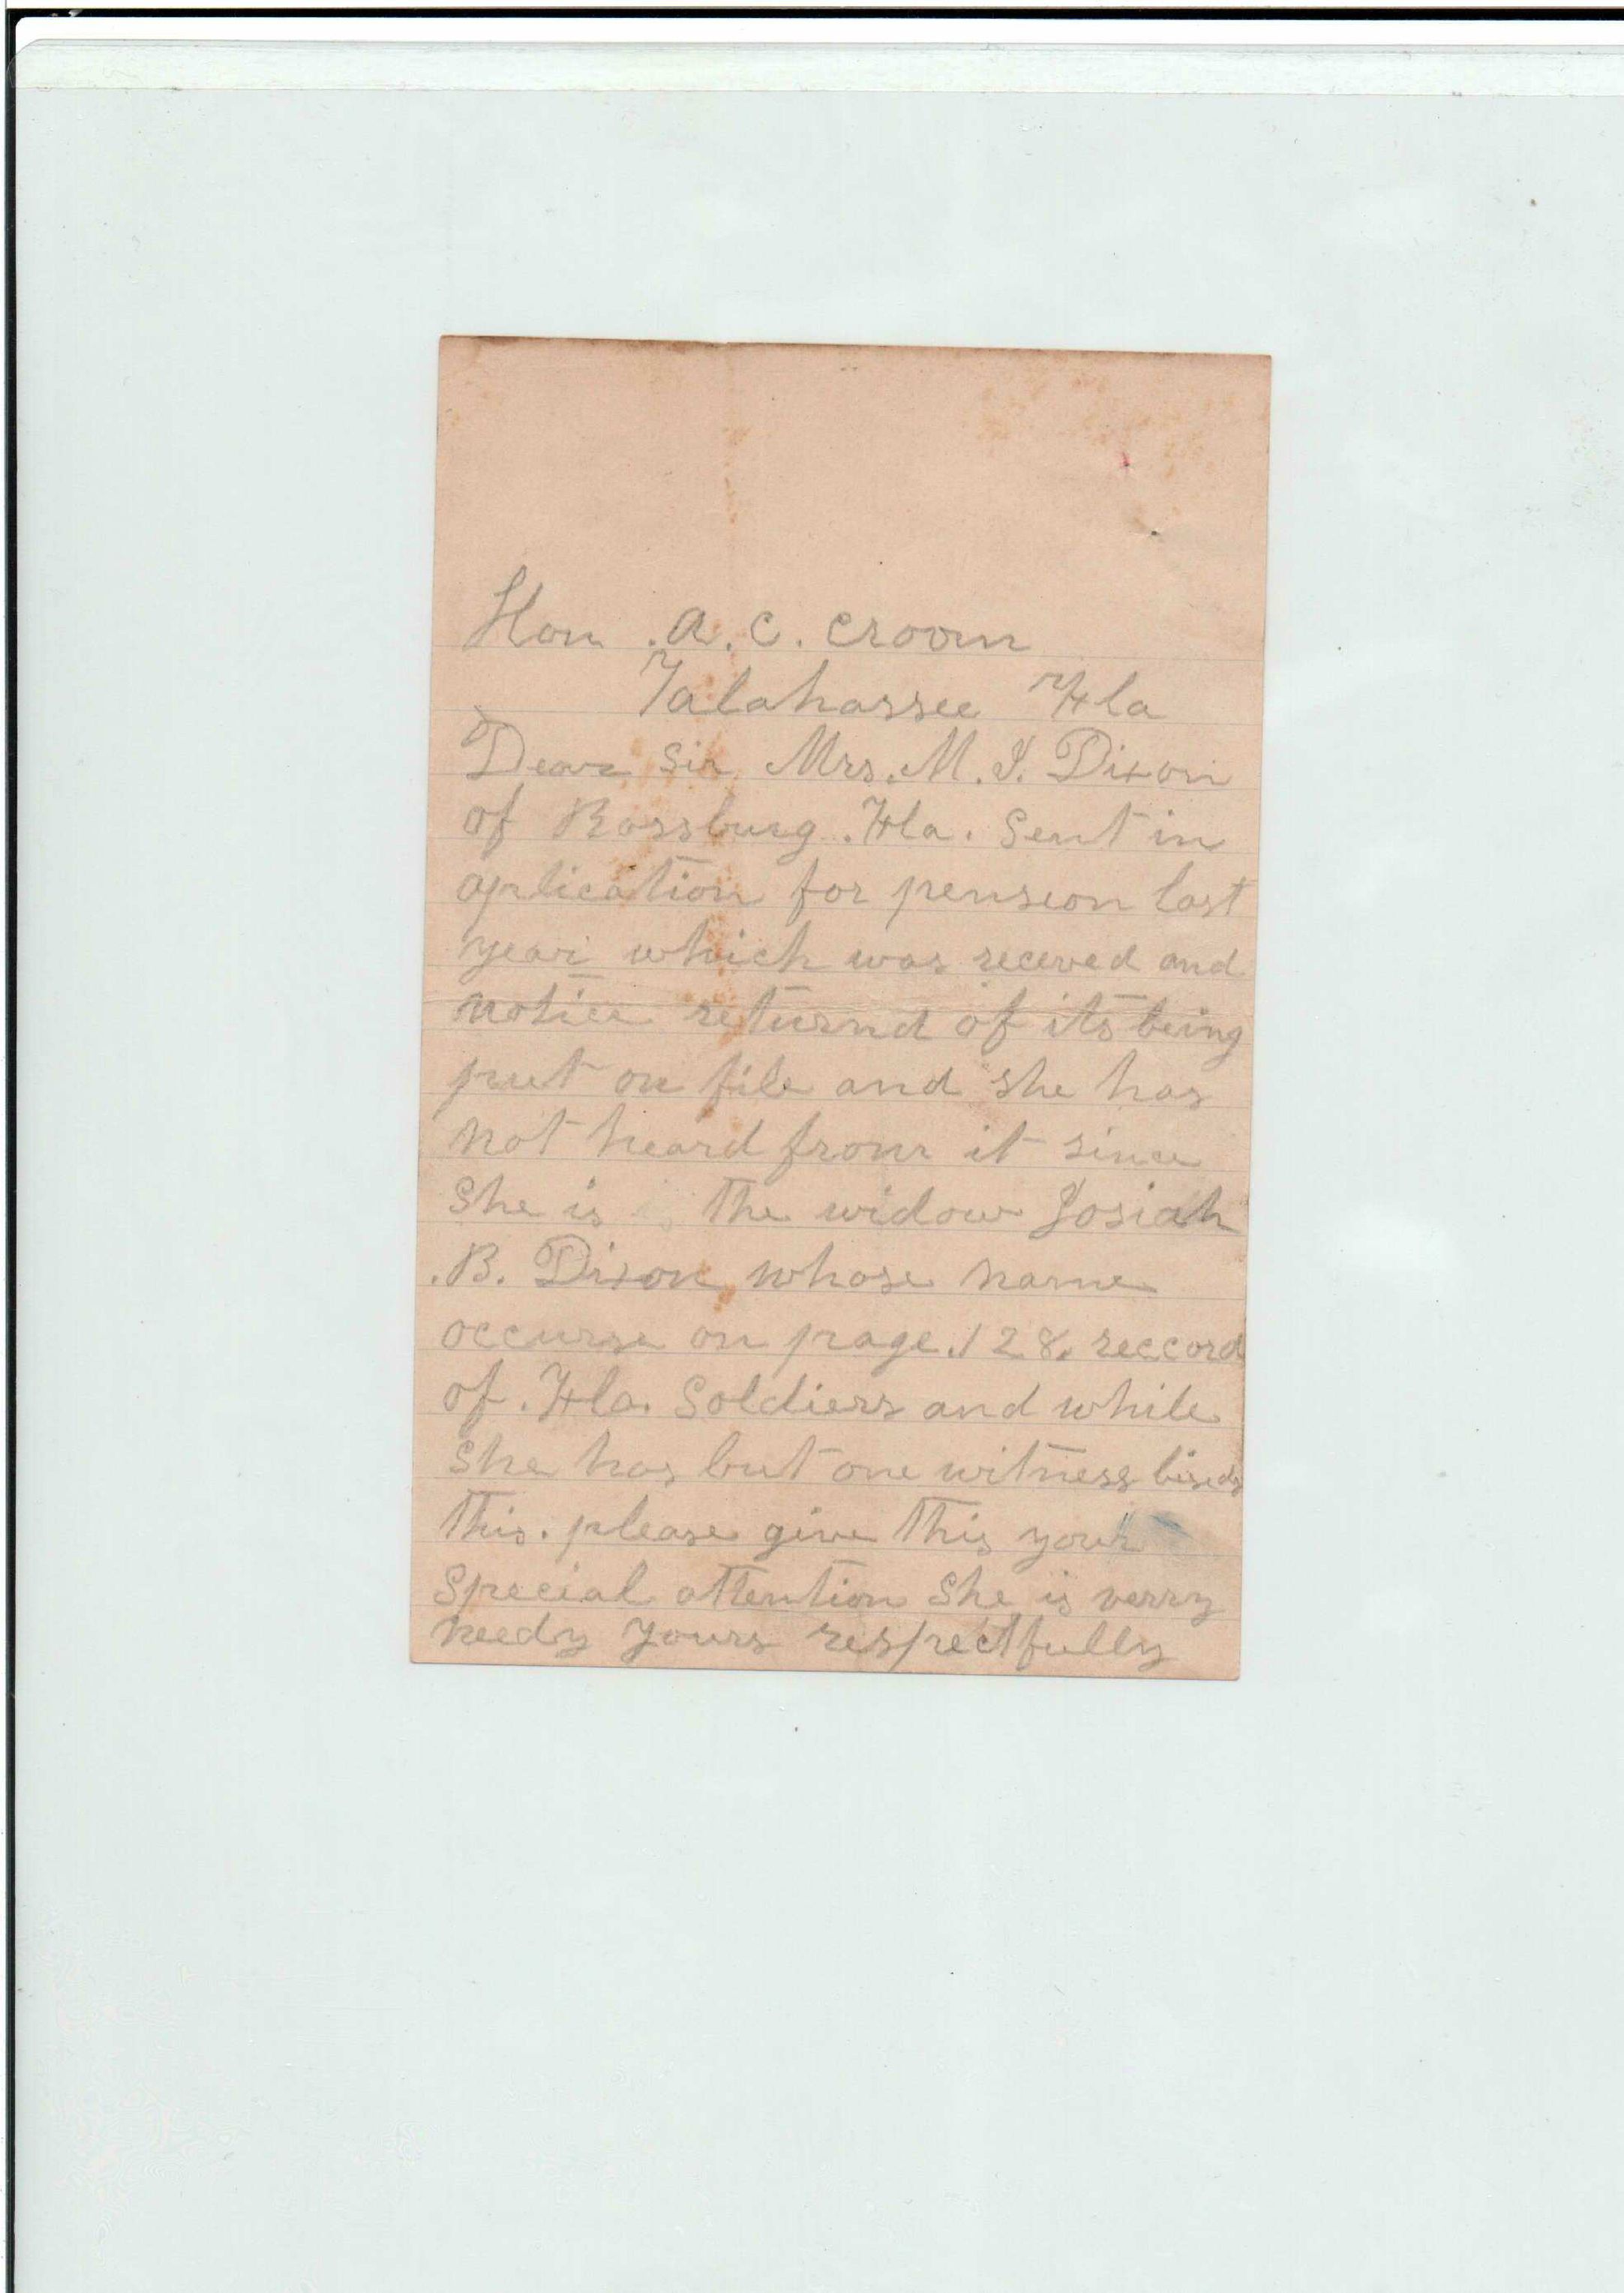 Hon . A. C. Croom
Talahassee Fla
Dear Sir Mrs. M. J. Dixon
of Rossburg. Fla. Sent in
aplication for pension last
year which was receved and
notice returnd of its being
put on file and she has
not heard from it since
She is the widow Josiah
.B. Dixon whose name
occurse on page. 128. reccord
of. Fla. Soldiers and while
She has but one witness bisids
this. please give this your
Special attention She is verry
needy yours respectfully